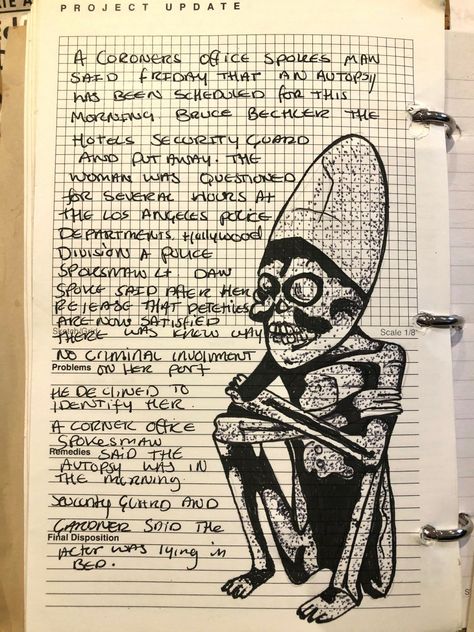 PROJECT UPDATE
A CORONERS OFFICE SPOKES MAN
SAID FRIDAY THAT AN AUTOPSY
HAS BEEN SCHEDULED FOR THIS
MORNING BRUCE BECHLER THE
HOTELS SECURITY GUARD
AND PUT AWAY. THE
WOMAN WAS QUESTIONED
FOR SEVERAL HOURS AT
THE LOS ANGELES POLICE
DEPARTMENTS HOLLYWOOD
DIVISION A POLICE
SPOKSMAN LT DAN
SPOKE SAID AFTER HER
RELEASE THAT DETECTIVES
ARE NOW SATISFIED
Scale 1/8"
THERE WAS KNEW WAY
NO CRIMINAL INVOLMENT
Problems ON HER PORT
HE DECLINED TO
IDENTIFY HER.
A CORNER OFFICE
SPOKESMAN
Remedies SAID THE
AUTOPSY WAS IN
THE MORNING.
SECURITY GUARD AND
GARDNER SAID THE
Final Disposition
ACTOR WAS LYING IN
BED.